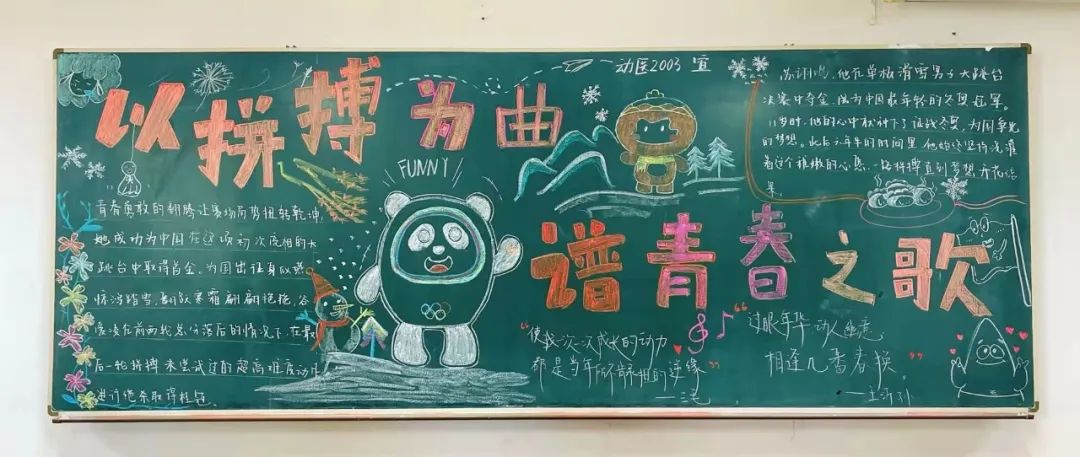 动医2003 宣
以拼搏为曲
谱青春之歌
FUNNY
青春勇敢的翻腾让赛场局势扭转乾坤,
她成功为中国在这项初次亮相的大
跳台中取得首金,为国出征身似燕
惊涛踏雪,翻飞寒霜翩翩
凌在前两轮总分落后的情况下,在最
后一轮拼搏未尝试过的超高难度动作
进行绝杀取得桂冠
苏翊鸣,他在单板滑雪男子大跳台
决赛中夺金,成为中国最年轻的冬奥冠军。
11岁时,他的心中就种下了征战冬奥,为国争光
的梦想。此后六年多的时间里,他始终坚持浇灌
着这个稚嫩的心愿,一路拼搏直到梦想开花结
果
“使我一次一次成长的动力
都是当年所
“过眼年华,动人幽意,
相逢几番春换”
——王沂孙